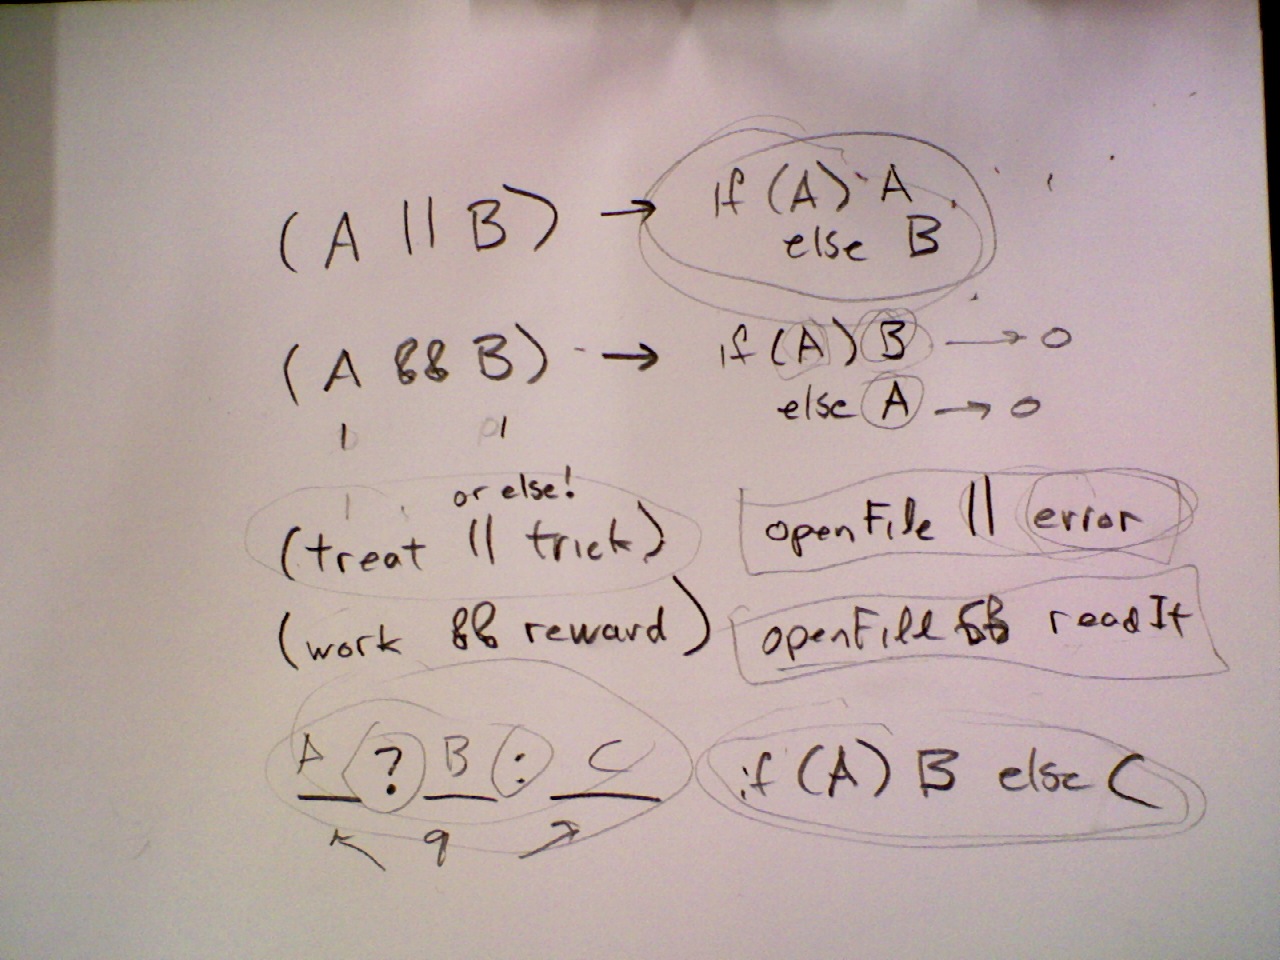 (A || B) → if (A) A
else B
(A && B) → if (A) B → 0
else A → 0
1 1
1 or else!
(treat || trick) openFile || error
(work && reward) openFile && readIt
A ? B : C if (A) B else C
9